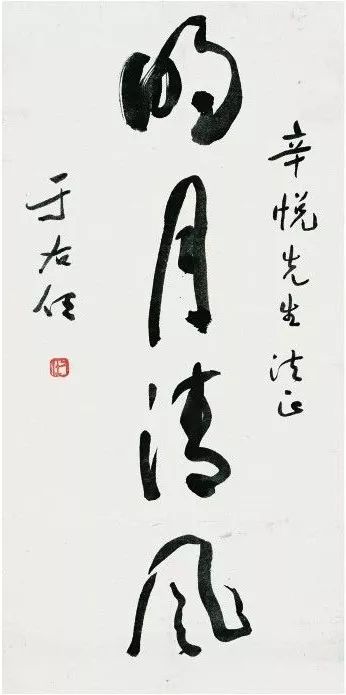 辛悦先生法正
明月清风
于右任